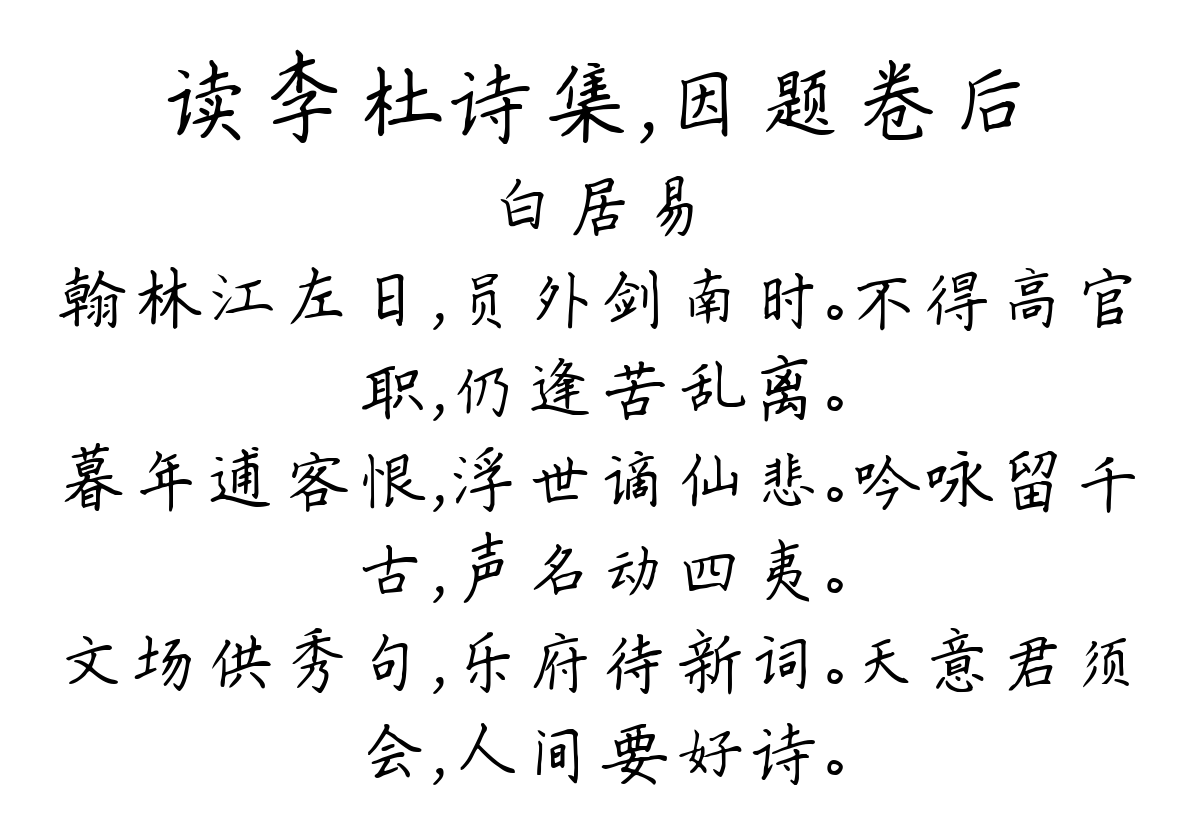 读李杜诗集,因题卷后
白居易
翰林江左日,员外剑南时。不得高官
职,仍逢苦乱离。
暮年逋客恨,浮世谪仙悲。吟咏留千
古,声名动四夷。
文场供秀句,乐府待新词。天意君须
会,人间要好诗。